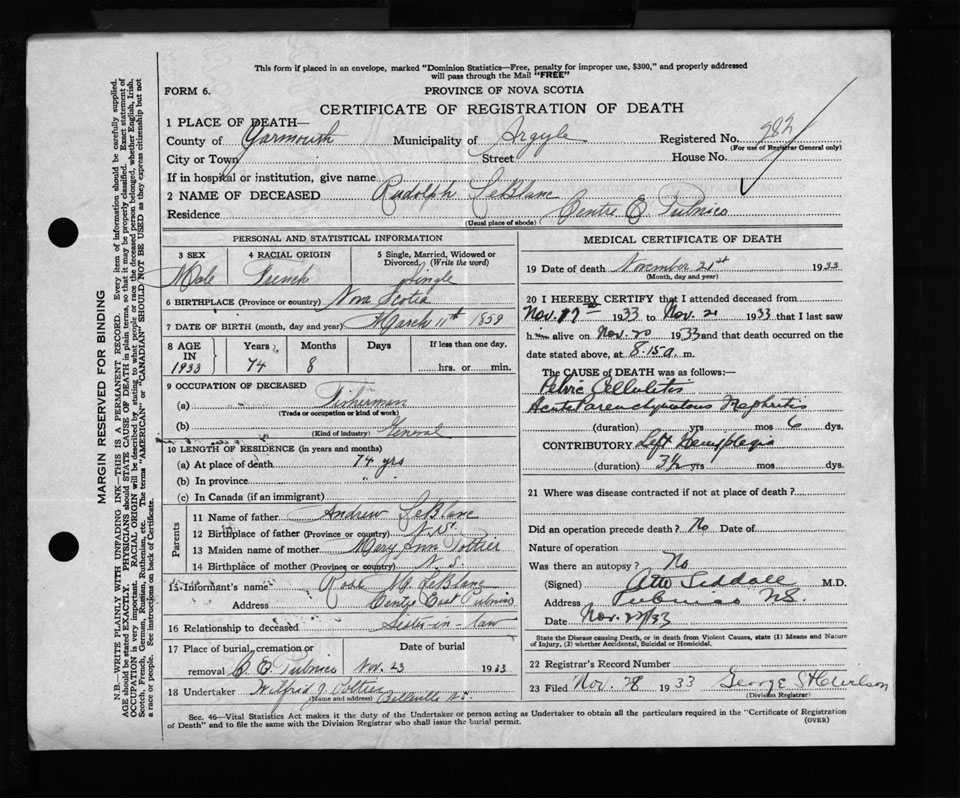 This form if placed in an envelope, marked "Dominion Statistics—Free, penalty for improper use, $300," and properly addressed
will pass through the Mail "FREE"
FORM 6.
PROVINCE OF NOVA SCOTIA
CERTIFICATE OF REGISTRATION OF DEATH
1 PLACE OF DEATH—
County of Yarmouth Municipality of Argyle Registered No. 982
(For use of Registrar General only)
City or Town Street House No.
If in hospital or institution, give name
2 NAME OF DECEASED Rudolph LeBlanc
Residence Centre E Pubnico
(Usual place of abode)
PERSONAL AND STATISTICAL INFORMATION
3 SEX 4 RACIAL ORIGIN 5 Single, Married, Widowed or
Divorced, (Write the word)
Male French Single
6 BIRTHPLACE (Province or country) Nova Scotia
7 DATE OF BIRTH (month, day and year) March 11th 1859
8 AGE Years Months Days If less than one day,
IN
1933 74 8 hrs. or min.
9 OCCUPATION OF DECEASED
(a) Fisherman
(Trade or occupation or kind of work)
(b) General
(Kind of industry)
10 LENGTH OF RESIDENCE (in years and months)
(a) At place of death 74 yrs
(b) In province " "
(c) In Canada (if an immigrant)
Parents
11 Name of father Andrew LeBlanc
12 Birthplace of father (Province or country) N.S.
13 Maiden name of mother Mary Ann Pottier
14 Birthplace of mother (Province or country) N.S.
15 Informant's name Rose M. LeBlanc
Address Centre East Pubnico
16 Relationship to deceased Sister-in-law
17 Place of burial, cremation or Date of burial
removal C. E. Pubnico Nov. 23 1933
18 Undertaker Wilfred J. Pottier
(Name and address) Belleville N.S.
MEDICAL CERTIFICATE OF DEATH
19 Date of death November 21st 1933
(Month, day and year)
20 I HEREBY CERTIFY that I attended deceased from
Nov. 17th 1933 to Nov. 21 1933 that I last saw
him alive on Nov. 20 1933 and that death occurred on the
date stated above, at 8.15 a. m.
The CAUSE OF DEATH was as follows:—
Pelvic Cellulitis
Acute Parenchymatous Nephritis
(duration) yrs mos 6 dys.
CONTRIBUTORY Left Hemiplegia
(duration) 3½ yrs mos dys.
21 Where was disease contracted if not at place of death?
Did an operation precede death? No Date of
Nature of operation
Was there an autopsy? No
(Signed) Siddall M.D.
Address Pubnico N.S.
Date Nov. 27/33
State the Disease causing Death, or in death from Violent Causes, state (1) Means and Nature
of Injury, (2) whether Accidental, Suicidal or Homicidal.
22 Registrar's Record Number
23 Filed Nov. 28 1933 George S
(Division Registrar)
Sec. 46—Vital Statistics Act makes it the duty of the Undertaker or person acting as Undertaker to obtain all the particulars required in the "Certificate of Registration
of Death" and to file the same with the Division Registrar who shall issue the burial permit. (OVER)
MARGIN RESERVED FOR BINDING
N.B.—WRITE PLAINLY WITH UNFADING INK—THIS IS A PERMANENT RECORD. Every item of information should be carefully supplied.
AGE should be stated EXACTLY. PHYSICIANS should STATE CAUSE OF DEATH in plain terms, so that it may be properly classified. Exact statement of
OCCUPATION is very important. RACIAL ORIGIN will be described by stating to what people or race the deceased person belonged, whether English, Irish,
Scotch, French, German, Russian, Ruthenian, etc. The terms "AMERICAN" or "CANADIAN" SHOULD NOT BE USED as they express citizenship but not
a race or people. See instructions on back of Certificate.